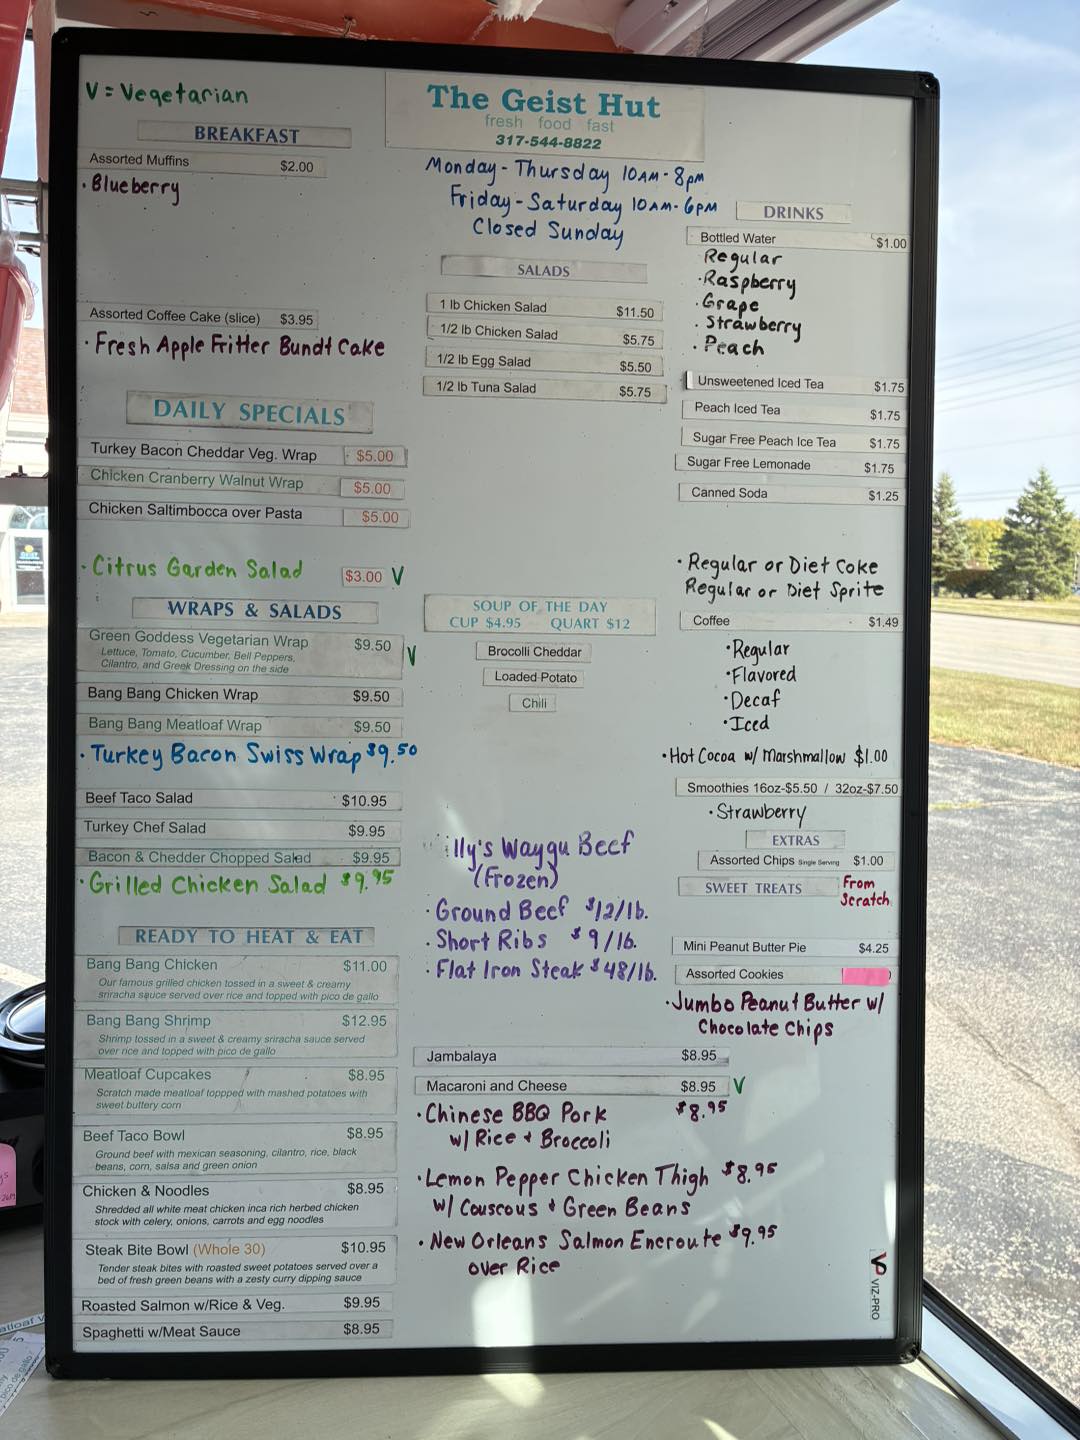 V = Vegetarian
BREAKFAST
Assorted Muffins $2.00
· Blueberry
Assorted Coffee Cake (slice) $3.95
· Fresh Apple Fritter Bundt Cake
DAILY SPECIALS
Turkey Bacon Cheddar Veg. Wrap $5.00
Chicken Cranberry Walnut Wrap $5.00
Chicken Saltimbocca over Pasta $5.00
· Citrus Garden Salad $3.00 V
WRAPS & SALADS
Green Goddess Vegetarian Wrap $9.50 V
Lettuce, Tomato, Cucumber, Bell Peppers,
Cilantro, and Greek Dressing on the side
Bang Bang Chicken Wrap $9.50
Bang Bang Meatloaf Wrap $9.50
· Turkey Bacon Swiss Wrap $9.50
Beef Taco Salad $10.95
Turkey Chef Salad $9.95
Bacon & Chedder Chopped Salad $9.95
· Grilled Chicken Salad $9.95
READY TO HEAT & EAT
Bang Bang Chicken $11.00
Our famous grilled chicken tossed in a sweet & creamy
sriracha sauce served over rice and topped with pico de gallo
Bang Bang Shrimp $12.95
Shrimp tossed in a sweet & creamy sriracha sauce served
over rice and topped with pico de gallo
Meatloaf Cupcakes $8.95
Scratch made meatloaf toppped with mashed potatoes with
sweet buttery corn
Beef Taco Bowl $8.95
Ground beef with mexican seasoning, cilantro, rice, black
beans, corn, salsa and green onion
Chicken & Noodles $8.95
Shredded all white meat chicken inca rich herbed chicken
stock with celery, onions, carrots and egg noodles
Steak Bite Bowl (Whole 30) $10.95
Tender steak bites with roasted sweet potatoes served over a
bed of fresh green beans with a zesty curry dipping sauce
Roasted Salmon w/Rice & Veg. $9.95
Spaghetti w/Meat Sauce $8.95
The Geist Hut
fresh food fast
317-544-8822
Monday - Thursday 10AM - 8pm
Friday - Saturday 10AM - 6PM
Closed Sunday
SALADS
1 lb Chicken Salad $11.50
1/2 lb Chicken Salad $5.75
1/2 lb Egg Salad $5.50
1/2 lb Tuna Salad $5.75
SOUP OF THE DAY
CUP $4.95 QUART $12
Brocolli Cheddar
Loaded Potato
Chili
Waygu Beef
(Frozen)
· Ground Beef $12/lb.
· Short Ribs $9/lb.
· Flat Iron Steak $48/lb.
Jambalaya $8.95
Macaroni and Cheese $8.95 V
· Chinese BBQ Pork $8.95
w/ Rice + Broccoli
· Lemon Pepper Chicken Thigh $8.95
w/ Couscous + Green Beans
· New Orleans Salmon Encroute $9.95
over Rice
DRINKS
Bottled Water $1.00
Regular
· Raspberry
· Grape
· Strawberry
· Peach
Unsweetened Iced Tea $1.75
Peach Iced Tea $1.75
Sugar Free Peach Ice Tea $1.75
Sugar Free Lemonade $1.75
Canned Soda $1.25
· Regular or Diet Coke
Regular or Diet Sprite
Coffee $1.49
· Regular
· Flavored
· Decaf
· Iced
· Hot Cocoa w/ Marshmallow $1.00
Smoothies 16oz-$5.50 / 32oz-$7.50
· Strawberry
EXTRAS
Assorted Chips Single Serving $1.00
SWEET TREATS From
Scratch
Mini Peanut Butter Pie $4.25
Assorted Cookies
· Jumbo Peanut Butter w/
Chocolate Chips
VIZ-PRO